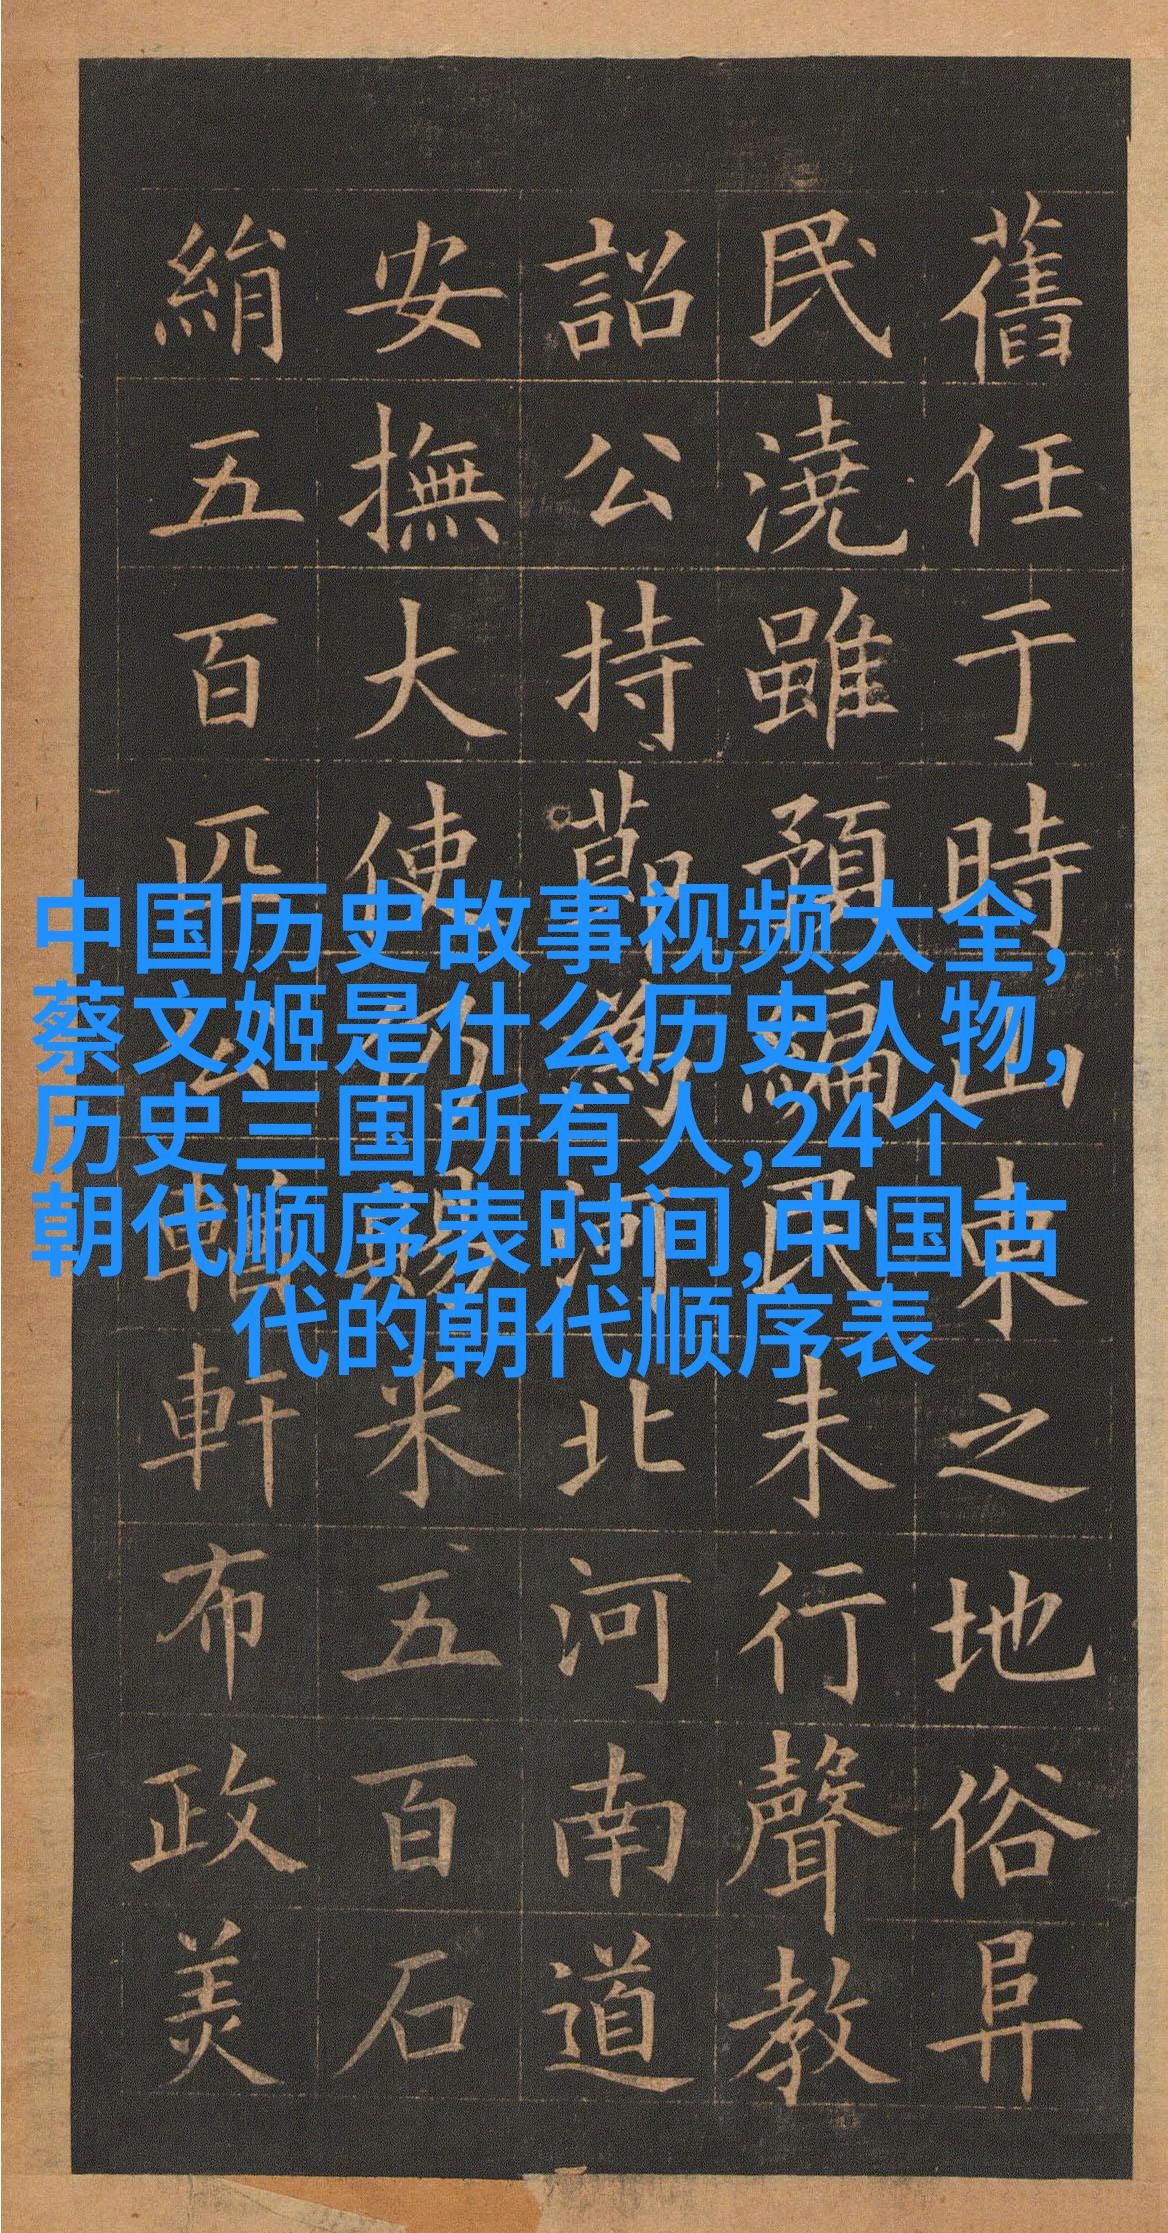 中国历史故事视频大全,
蔡文姬是什么历史人物,
历史三国所有人,24个
朝代顺序表时间,中国古
代的朝代顺序表
舊任于時山東之地俗阜
民澆雖預編民未行聲教
詔公持節爲河北河南道
安撫大使仍賜米五百石
絹五百匹公輶軒布政美